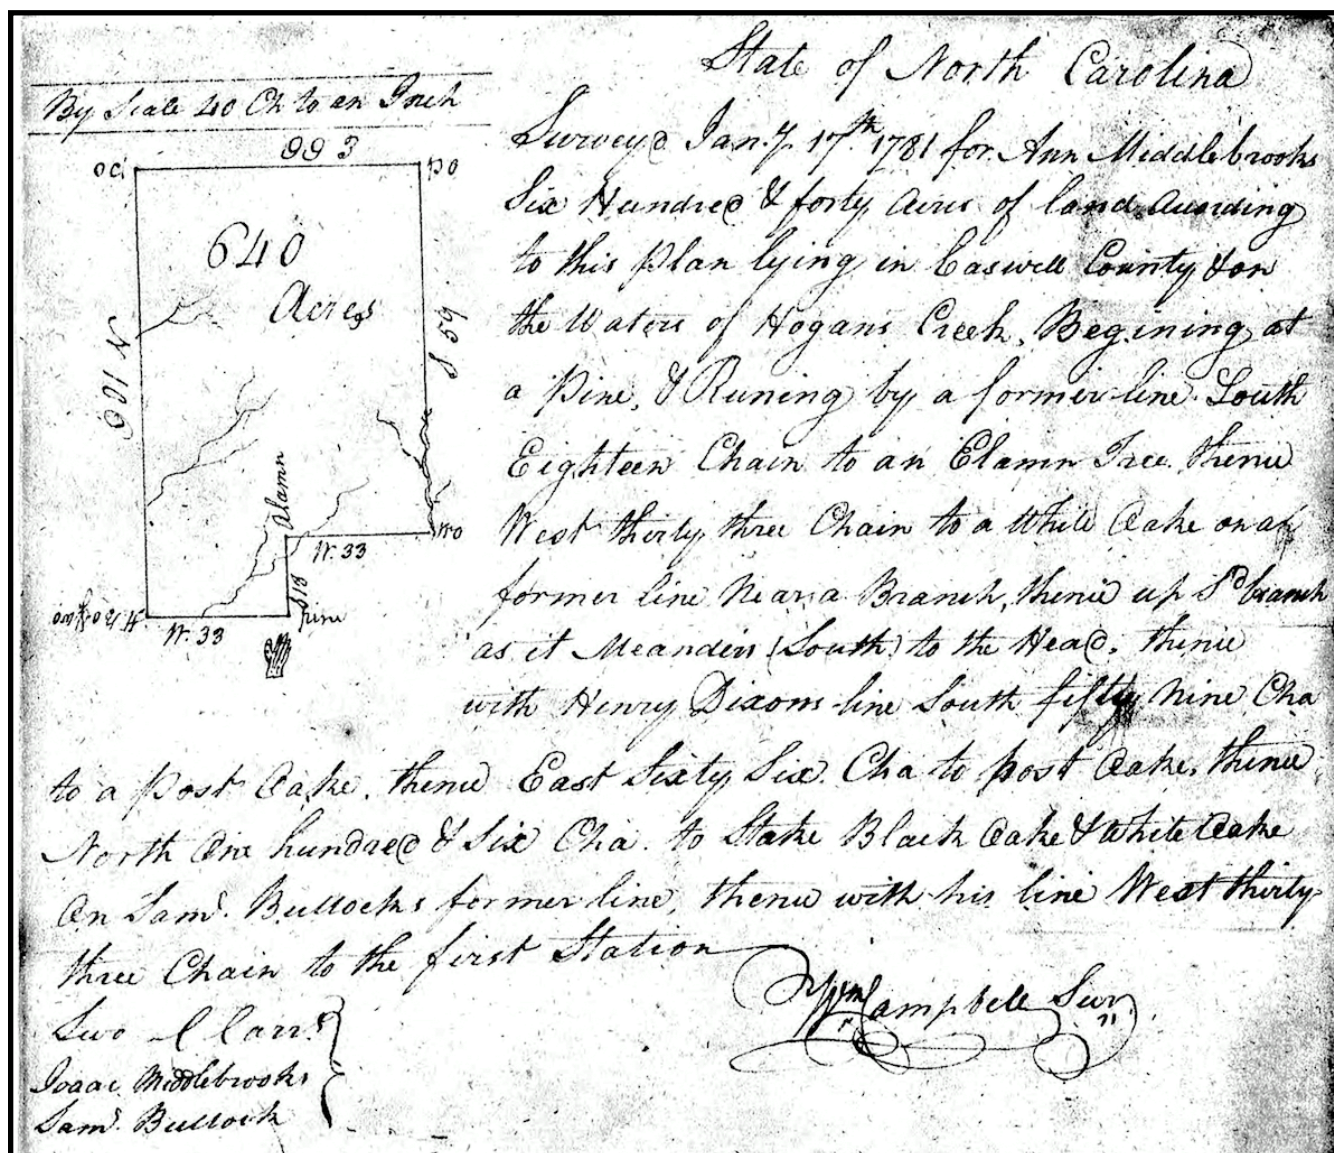 State of North Carolina
By Scale 40 Ch to an Inch
Survey'd Jan.y 17th 1781 for Ann Middlebrooks
Six Hundred & forty Acres of land According
to this Plan lying in Caswell County & on
the Waters of Hogans Creek, Begining at
a Pine, & Runing by a former line South
Eighteen Chain to an Elamn Tree thence
West thirty three Chain to a White Oake on a
former line Near a Branch, thence up Sd branch
as it Meanders (South) to the Head, thence
with Henry Dixons line South fifty Nine Cha
to a Post Oake, thence East Sixty Six Cha to post Oake, thence
North One hundred & Six Cha. to Stake Black Oake & White Oake
On Saml. Bullocks former line, thence with his line West thirty
three Chain to the first Station
Wm Campbell Sur
Swo C Carrs
Isaac Middlebrooks
Saml. Bullock
E 66
po
po
640
Acres
N 106
S 59
Alamn
wo
W. 33
S 18
pine
W. 33